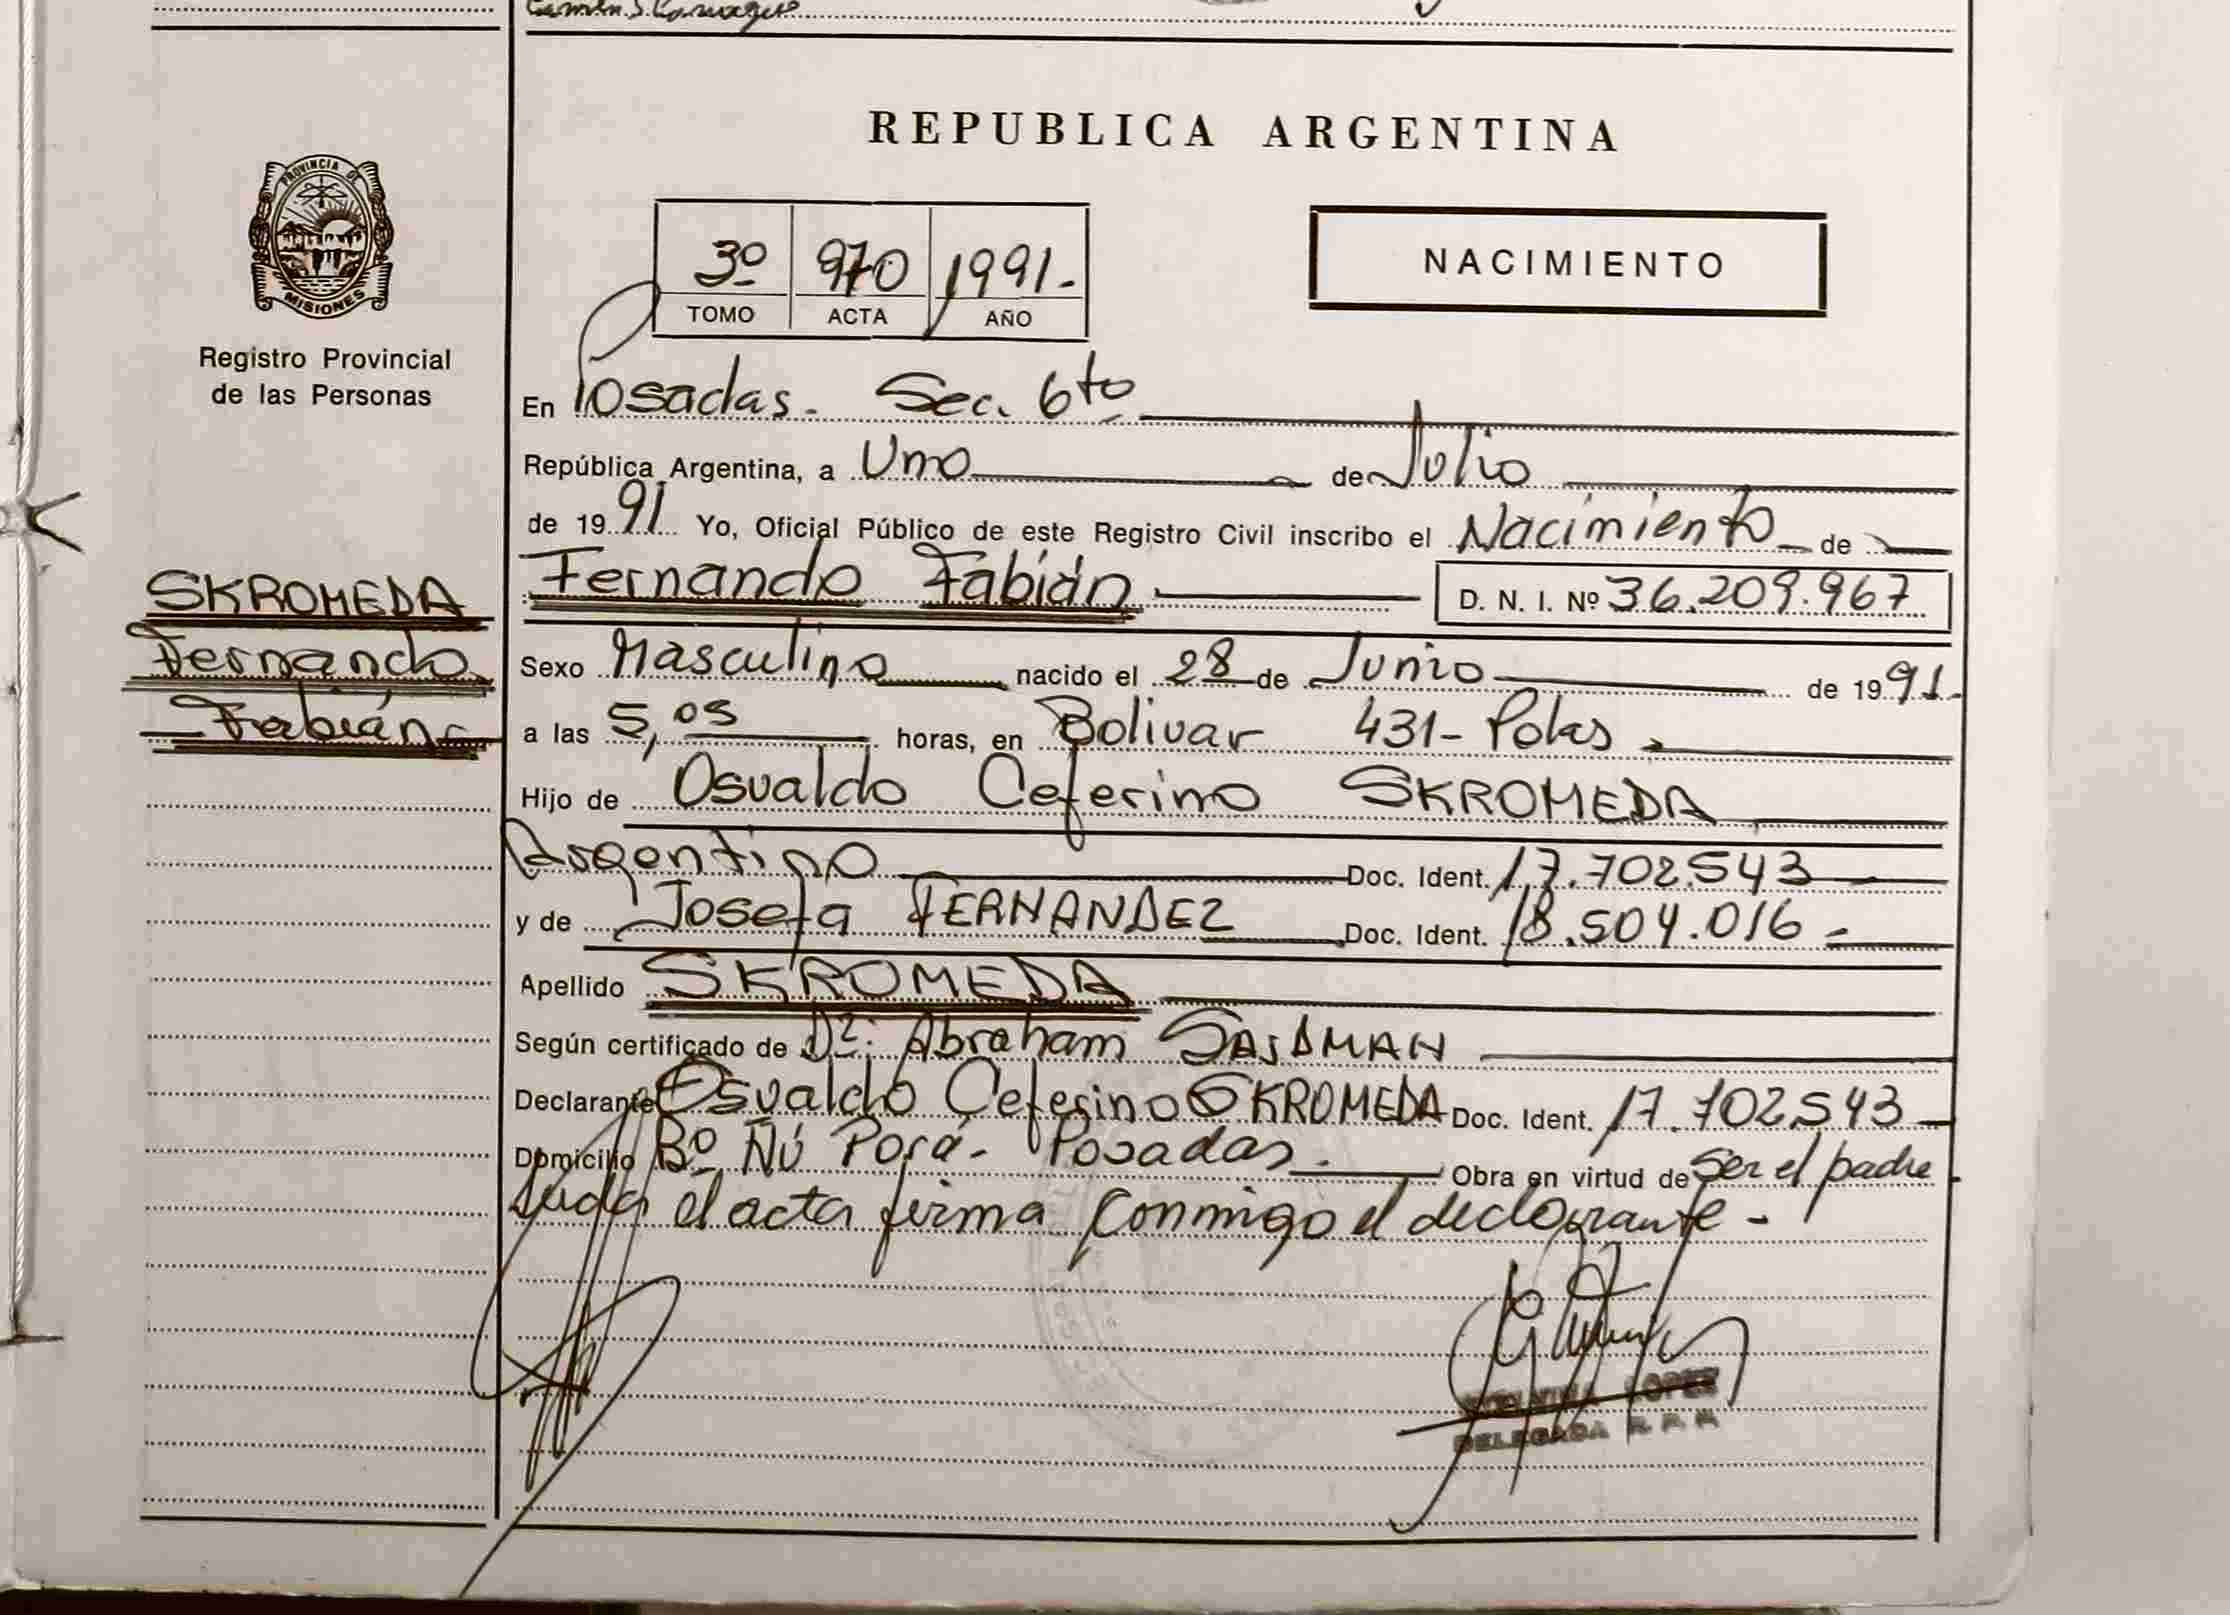 Carmen S.
REPUBLICA ARGENTINA
PROVINCIA DE
MISIONES
Registro Provincial
de las Personas
3º 970 1991.-
TOMO ACTA AÑO
NACIMIENTO
En Posadas. Sec. 6to
República Argentina, a Uno de Julio
de 1991 Yo, Oficial Público de este Registro Civil inscribo el Nacimiento de
Fernando Fabián D. N. I. Nº 36.209.967
SKROMEDA
Fernando
Fabián
Sexo Masculino nacido el 28 de Junio de 1991.
a las 5,05 horas, en Bolivar 431- Pdas
Hijo de Osvaldo Ceferino SKROMEDA
Argentino Doc. Ident. 17.702.543
y de Josefa FERNANDEZ Doc. Ident. 18.504.016 -
Apellido SKROMEDA
Según certificado de Dr. Abraham
Declarante Osvaldo Ceferino SKROMEDA Doc. Ident. 17.702.543
Domicilio Bº Ñú Porá- Posadas. Obra en virtud de Ser el padre
el acta firma conmigo el declarante -
LOPEZ
DELEGADA R. P. P.